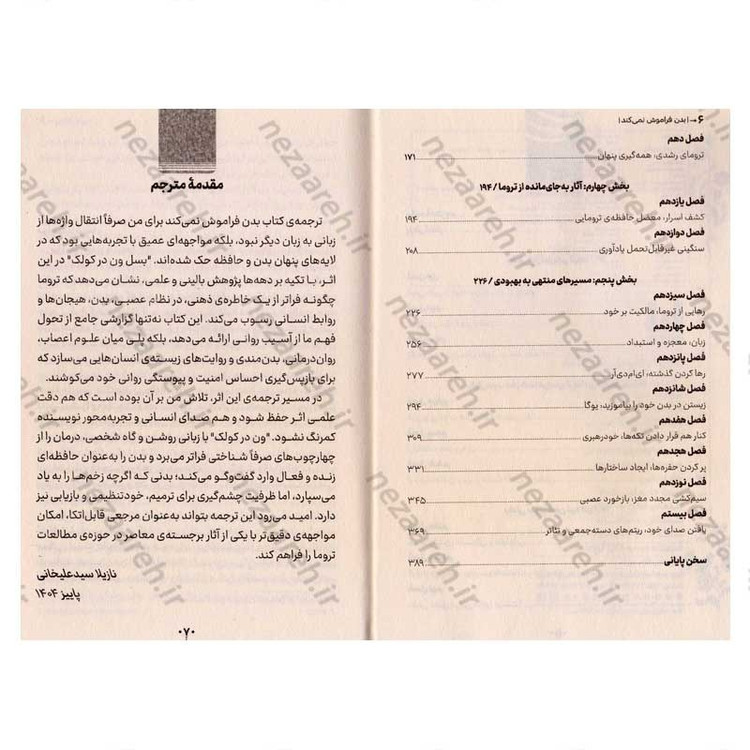 ۶ ← | بدن فراموش نمی‌کند |
فصل دهم
ترومای رشدی: همه‌گیری پنهان ۱۷۱
بخش چهارم: آثار به‌جای‌مانده از تروما / ۱۹۴
فصل یازدهم
کشف اسرار، معضل حافظه‌ی ترومایی ۱۹۴
فصل دوازدهم
سنگینی غیرقابل‌تحمل یادآوری ۲۰۸
بخش پنجم: مسیرهای منتهی به بهبودی / ۲۲۶
فصل سیزدهم
رهایی از تروما، مالکیت بر خود ۲۲۶
فصل چهاردهم
زبان، معجزه و استبداد ۲۵۶
فصل پانزدهم
رها کردن گذشته: ای‌ام‌دی‌آر ۲۷۷
فصل شانزدهم
زیستن در بدن خود را بیاموزید: یوگا ۲۹۴
فصل هفدهم
کنار هم قرار دادن تکه‌ها، خودرهبری ۳۰۹
فصل هجدهم
پر کردن حفره‌ها، ایجاد ساختارها ۳۳۱
فصل نوزدهم
سیم‌کشی مجدد مغز، بازخورد عصبی ۳۴۵
فصل بیستم
یافتن صدای خود، ریتم‌های دسته‌جمعی و تئاتر ۳۶۹
سخن پایانی ۳۸۹
مقدمهٔ مترجم
ترجمه‌ی کتاب بدن فراموش نمی‌کند برای من صرفاً انتقال واژه‌ها از
زبانی به زبان دیگر نبود، بلکه مواجهه‌ای عمیق با تجربه‌هایی بود که در
لایه‌های پنهان بدن و حافظه حک شده‌اند. "بسل ون در کولک" در این
اثر، با تکیه بر دهه‌ها پژوهش بالینی و علمی، نشان می‌دهد که تروما
چگونه فراتر از یک خاطره‌ی ذهنی، در نظام عصبی، بدن، هیجان‌ها و
روابط انسانی رسوب می‌کند. این کتاب نه‌تنها گزارشی جامع از تحول
فهم ما از آسیب روانی ارائه می‌دهد، بلکه پلی میان علوم اعصاب،
روان‌درمانی، بدن‌مندی و روایت‌های زیسته‌ی انسان‌هایی می‌سازد که
برای بازپس‌گیری احساس امنیت و پیوستگی روانی خود می‌کوشند.
در مسیر ترجمه‌ی این اثر، تلاش من بر آن بوده است که هم دقت
علمی اثر حفظ شود و هم صدای انسانی و تجربه‌محور نویسنده
کمرنگ نشود. "ون در کولک" با زبانی روشن و گاه شخصی، درمان را از
چهارچوب‌های صرفاً شناختی فراتر می‌برد و بدن را به‌عنوان حافظه‌ای
زنده و فعال وارد گفت‌وگو می‌کند؛ بدنی که اگرچه زخم‌ها را به یاد
می‌سپارد، اما ظرفیت چشم‌گیری برای ترمیم، خودتنظیمی و بازیابی نیز
دارد. امید می‌رود این ترجمه بتواند به‌عنوان مرجعی قابل‌اتکا، امکان
مواجهه‌ی دقیق‌تر با یکی از آثار برجسته‌ی معاصر در حوزه‌ی مطالعات
تروما را فراهم کند.
نازیلا سیدعلیخانی
پاییز ۱۴۰۴
۰۷۰
nezaareh.ir